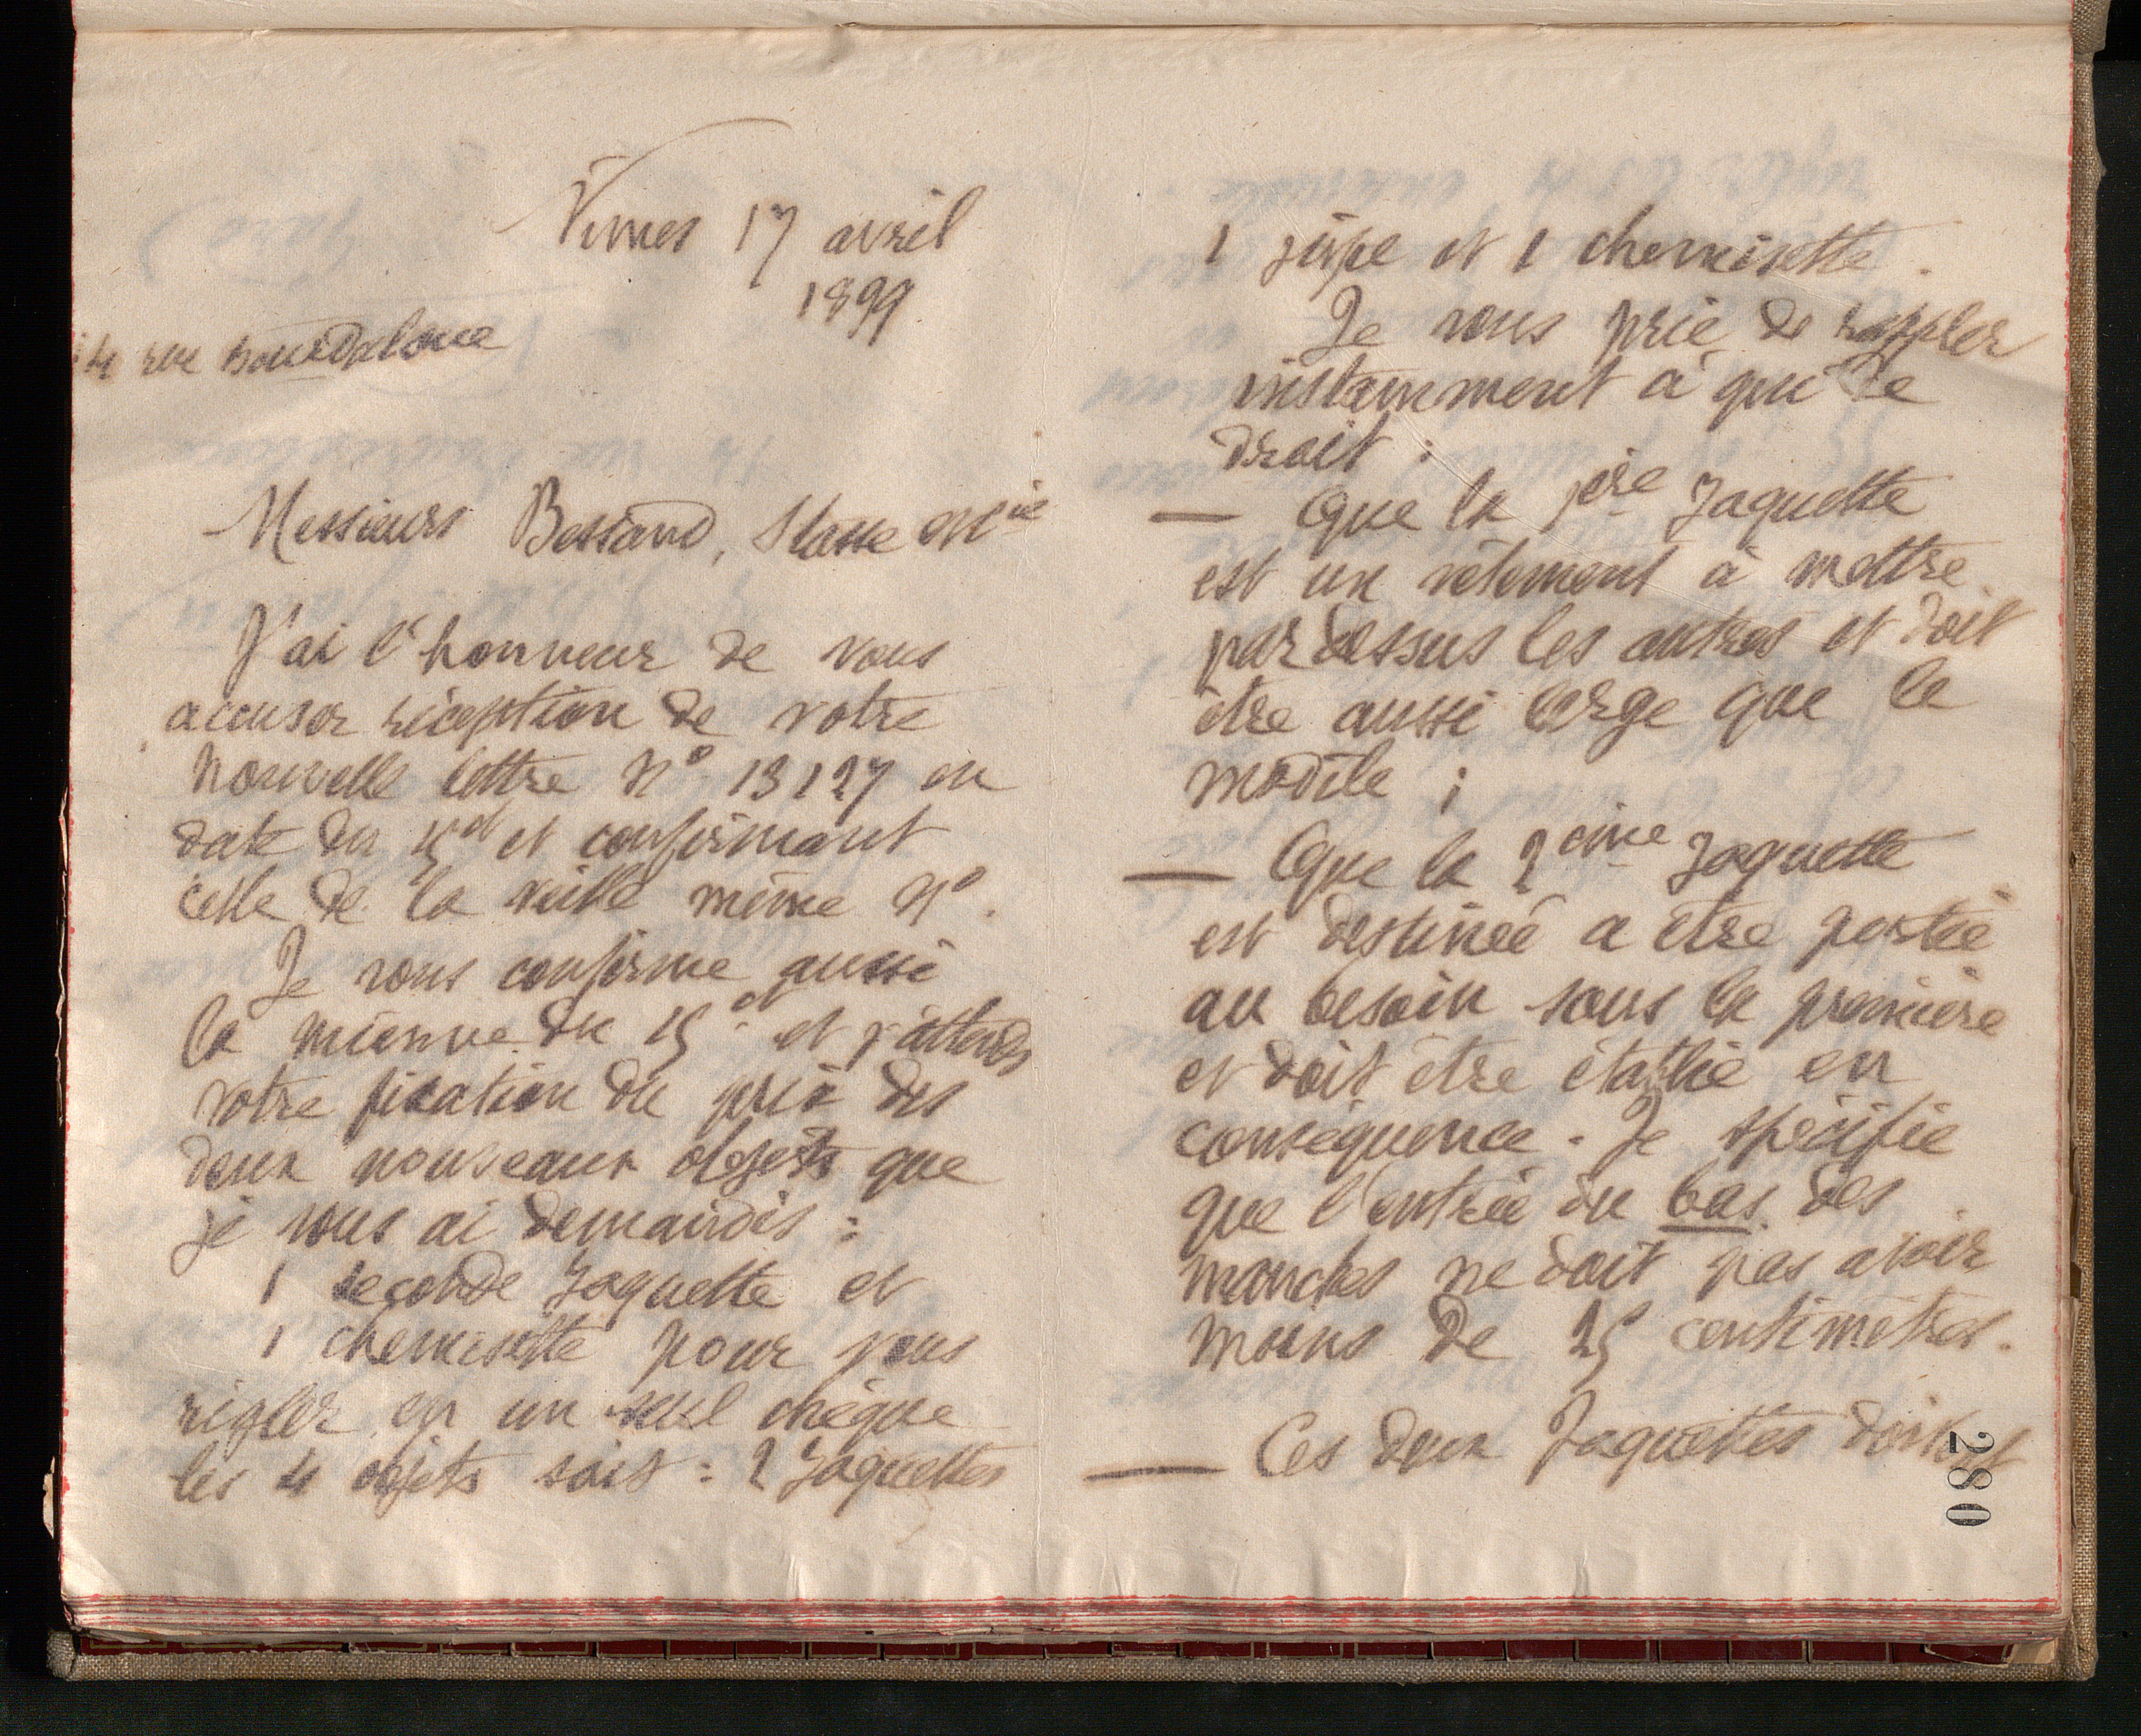 Nimes 17 avril
1899
14 rue Bourdaloue
Messieurs Bessand, Stasse et Cie
J'ai l'honneur de vous
accuser réception de votre
nouvelle lettre No 13127 en
date du 15 ct et confirmant
celle de la veille même No.
Je vous confirme aussi
la mienne du 15 ct et j'attends
votre fixation du prix des
deux nouveaux objets que
je vous ai demandés :
1 seconde Jaquette et
1 chemisette pour vous
régler en un seul chèque
les 4 objets soit : 2 Jaquettes
1 jupe et 1 chemisette.
Je vous prie de rappler
instamment à qui de
droit :
— Que la 1ère Jaquette
est un vêtement à mettre
par dessus les autres et doit
être aussi large que le
modèle ;
— Que la 2ème Jaquette
est destinée a être portée
au besoin sous la première
et doit être établie en
conséquence. Je spécifie
que l'entrée du bas des
manches ne doit pas avoir
moins de 25 centimètres.
— Ces deux Jaquettes doivent
280